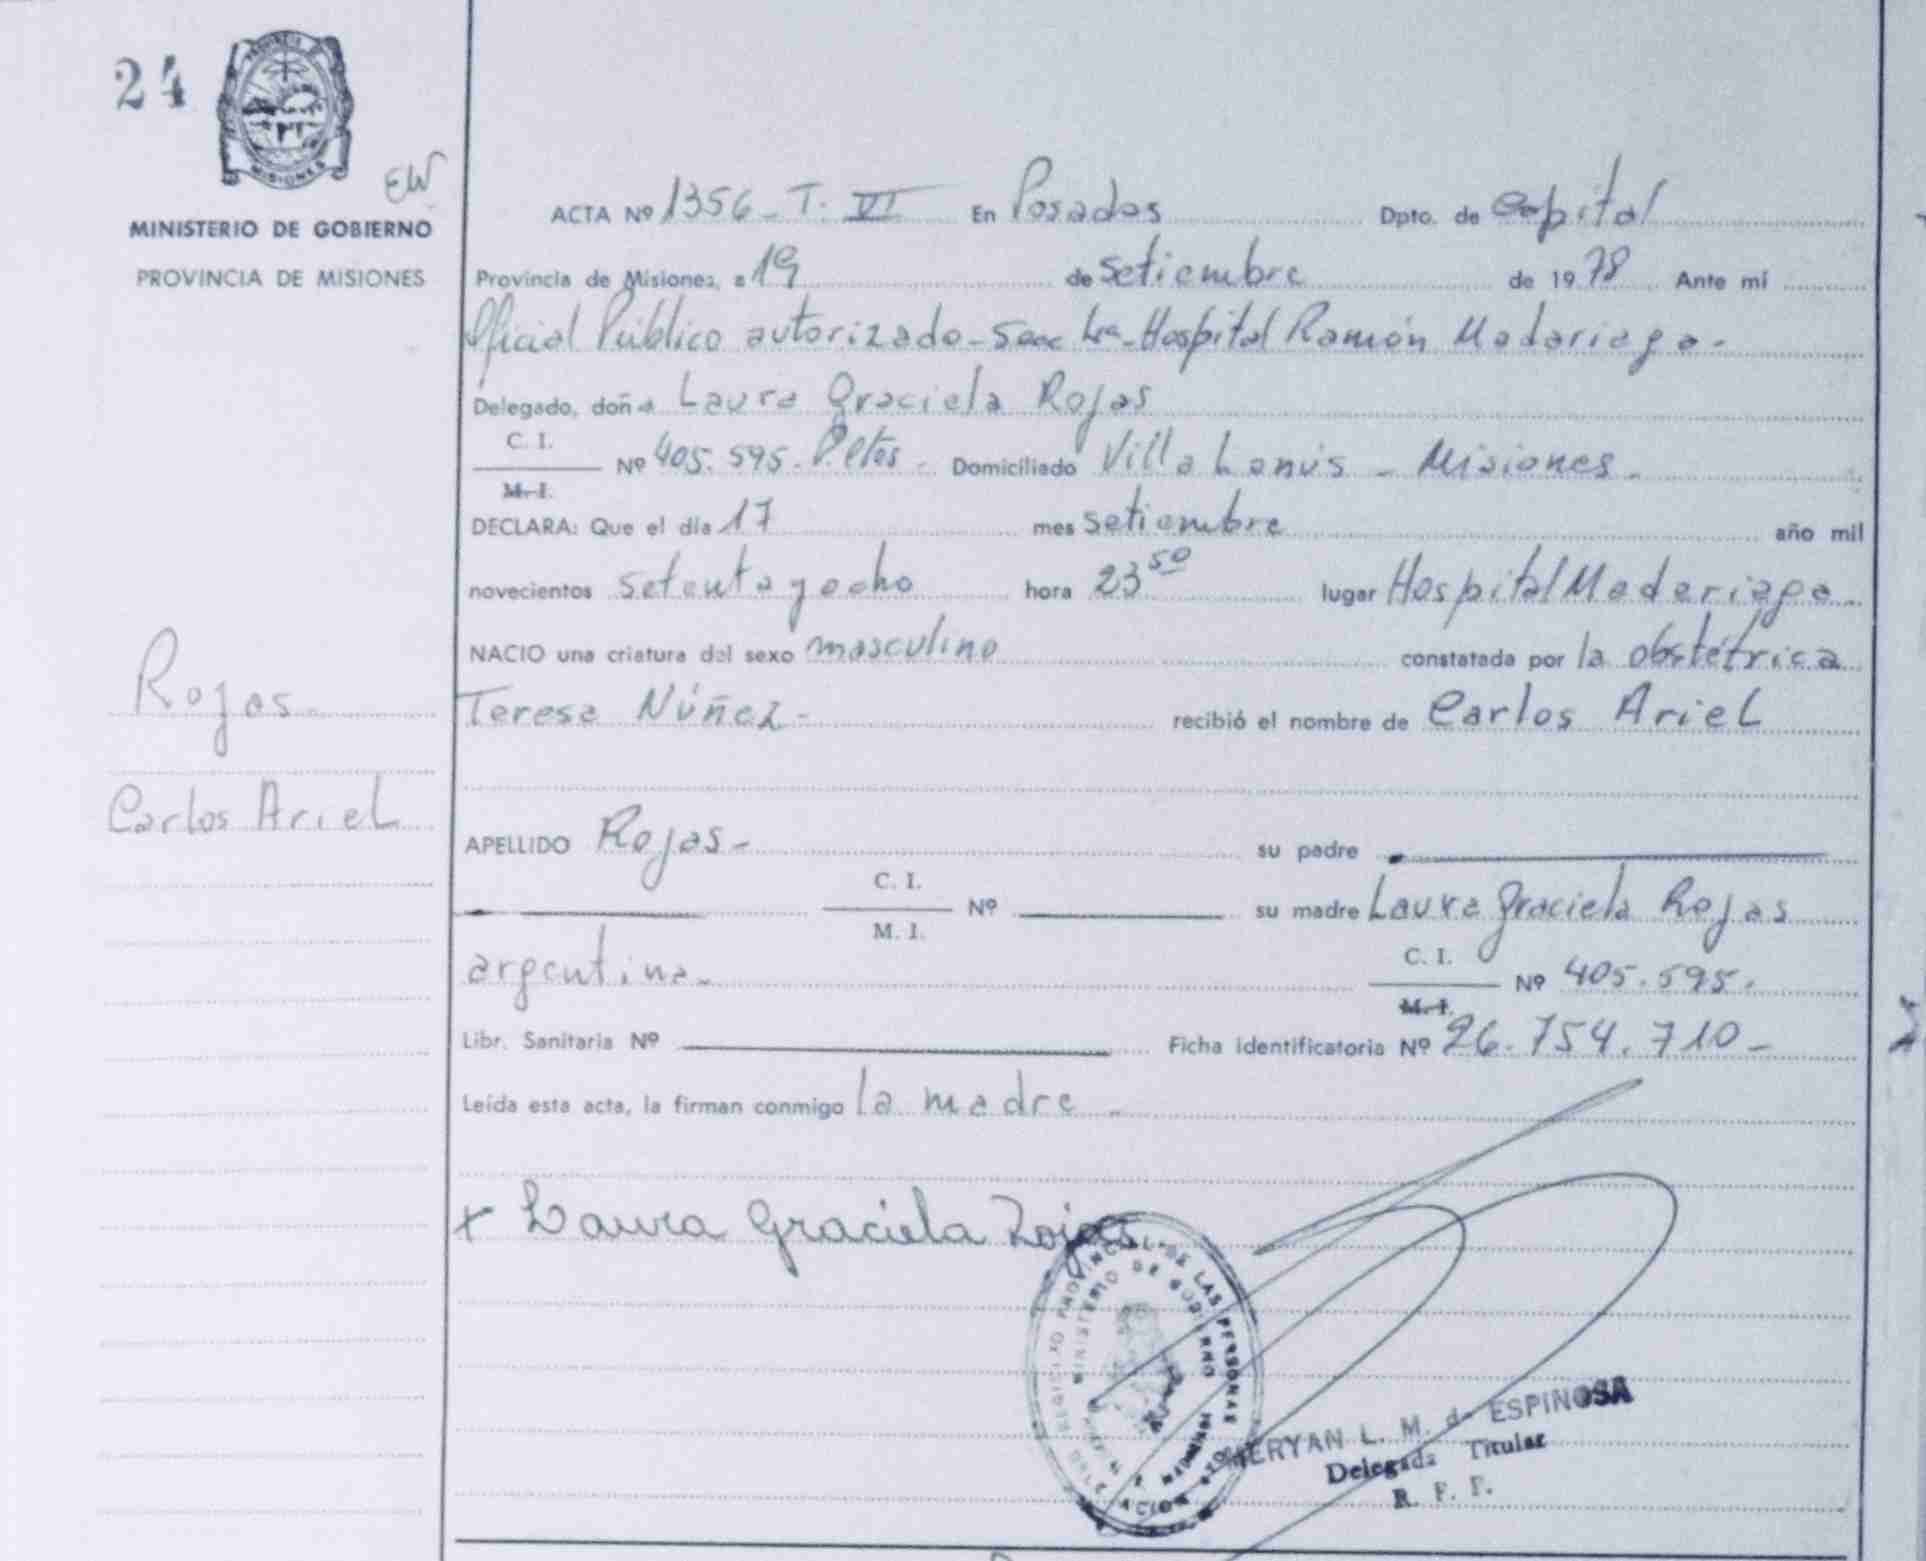 24
PROVINCIA DE
MISIONES
EW
MINISTERIO DE GOBIERNO
PROVINCIA DE MISIONES
ACTA Nº 1356 - T. VI En Posadas Dpto. de Capital
Provincia de Misiones, a 19 de setiembre de 1978 Ante mi
Oficial Público autorizado - Secc 1ra - Hospital Ramón Madariaga -
Delegado, doña Laura Graciela Rojas
C. I.
Nº 405.595. Domiciliado Villa Lanús - Misiones -
M. I.
DECLARA: Que el día 17 mes setiembre año mil
novecientos setenta y ocho hora 23 50 lugar Hospital Madariaga -
NACIO una criatura del sexo masculino constatada por la obstétrica
Teresa Núñez - recibió el nombre de Carlos Ariel
Rojas -
Carlos Ariel
APELLIDO Rojas - su padre
C. I.
Nº su madre Laura Graciela Rojas
M. I.
argentina - C. I. Nº 405.595.
M. I.
Libr. Sanitaria Nº Ficha identificatoria Nº 26.754.710 -
Leída esta acta, la firman conmigo la madre -
x Laura Graciela Rojas
PROVINCIAL DE LAS PERSONAS
MINISTERIO DE GOBIERNO
MERYAN L. M. de ESPINOSA
Delegada Titular
R. P. P.